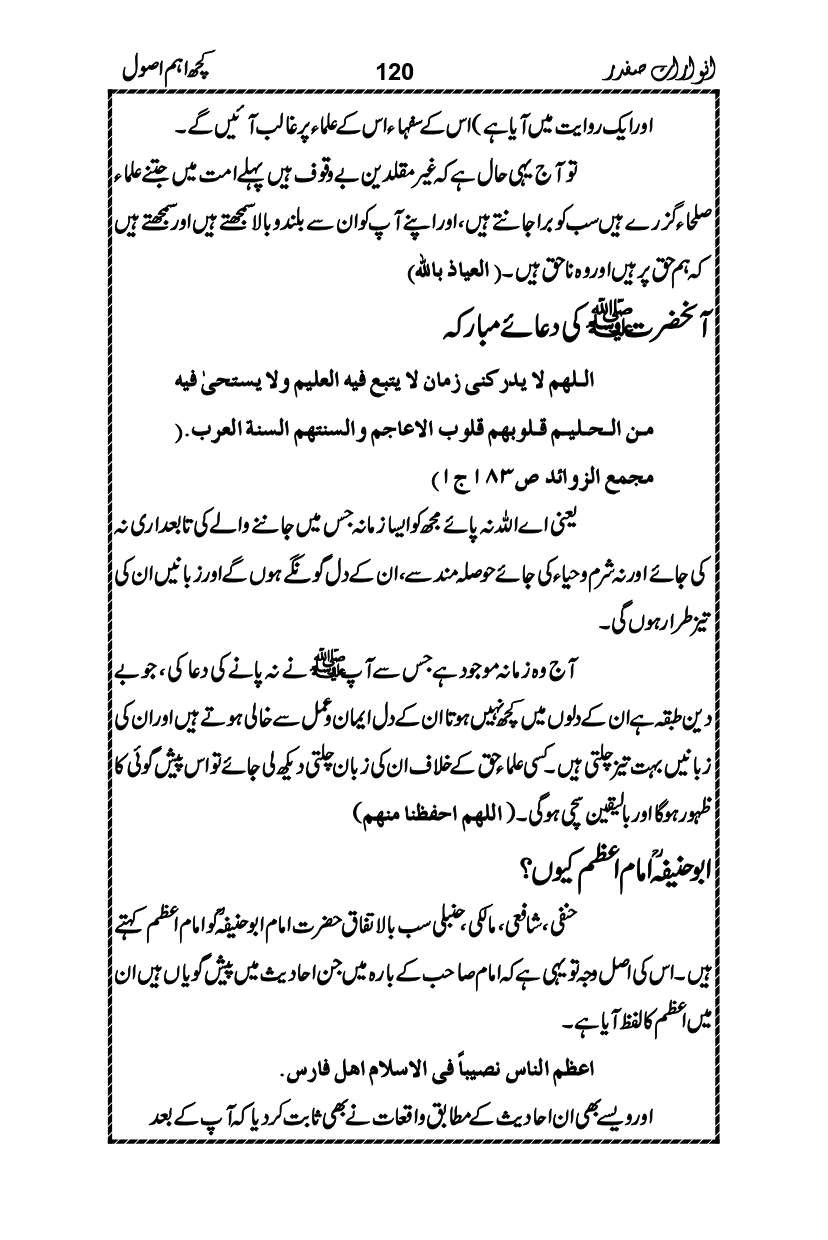 انوارات صفدر 120 کچھ اہم اصول
اور ایک روایت میں آیا ہے) اس کے سفہاء اس کے علماء پر غالب آئیں گے۔
تو آج یہی حال ہے کہ غیر مقلدین بے وقوف ہیں پہلے امت میں جتنے علماء
صلحاء گزرے ہیں سب کو برا جانتے ہیں، اور اپنے آپ کو ان سے بلند و بالا سمجھتے ہیں اور سمجھتے ہیں
کہ ہم حق پر ہیں اور وہ ناحق ہیں۔( العیاذ باللہ)
آنحضرت ﷺ کی دعائے مبارکہ
اللهم لا يدركنى زمان لا يتبع فيه العليم ولا يستحىٰ فيه
من الحليم قلوبهم قلوب الاعاجم والسنتهم السنة العرب.(
مجمع الزوائد ص ۱۸۳ ج ۱)
یعنی اے اللہ نہ پائے مجھ کو ایسا زمانہ جس میں جاننے والے کی تابعداری نہ
کی جائے اور نہ شرم و حیاء کی جائے حوصلہ مند سے، ان کے دل گونگے ہوں گے اور زبانیں ان کی
تیز طرار ہوں گی۔
آج وہ زمانہ موجود ہے جس سے آپ ﷺ نے نہ پانے کی دعا کی، جو بے
دین طبقہ ہے ان کے دلوں میں کچھ نہیں ہوتا ان کے دل ایمان و عمل سے خالی ہوتے ہیں اور ان کی
زبانیں بہت تیز چلتی ہیں۔ کسی علماء حق کے خلاف ان کی زبان چلتی دیکھ لی جائے تو اس پیش گوئی کا
ظہور ہوگا اور بالیقین سچی ہوگی۔( اللهم احفظنا منهم)
ابوحنیفہؒ امام اعظم کیوں؟
حنفی، شافعی، مالکی، حنبلی سب بالاتفاق حضرت امام ابوحنیفہؒ کو امام اعظم کہتے
ہیں۔ اس کی اصل وجہ تو یہی ہے کہ امام صاحب کے بارہ میں جن احادیث میں پیش گویاں ہیں ان
میں اعظم کا لفظ آیا ہے۔
اعظم الناس نصيباً فى الاسلام اهل فارس.
اور ویسے بھی ان احادیث کے مطابق واقعات نے بھی ثابت کر دیا کہ آپ کے بعد